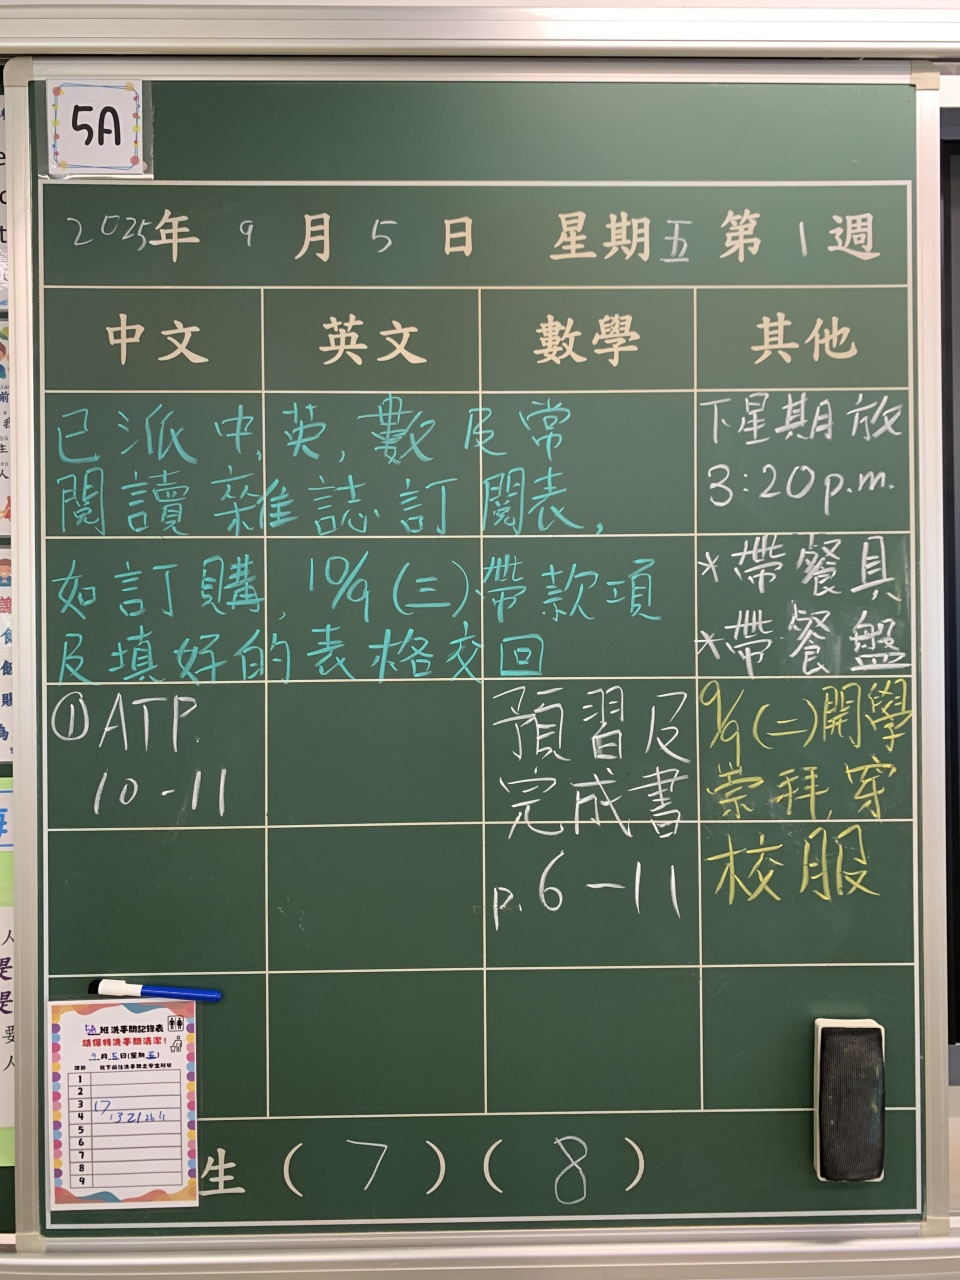 5A
2025年 9 月 5 日 星期五 第 1 週
中文 英文 數學 其他
已派中,英,數及常
閱讀雜誌訂閱表,
下星期放
3:20p.m.
如訂購,10/9(三)帶款項
及填好的表格交回
*帶餐具
*帶餐盤
①ATP.
10-11
預習及
完成書
p.6-11
9/9(二)開學
崇拜,穿
校服
5A班洗手間記錄表
請保持洗手間清潔!
9月5日(星期五)
1
2
3 17
4
5
6
7
8
9
生 (7) (8)